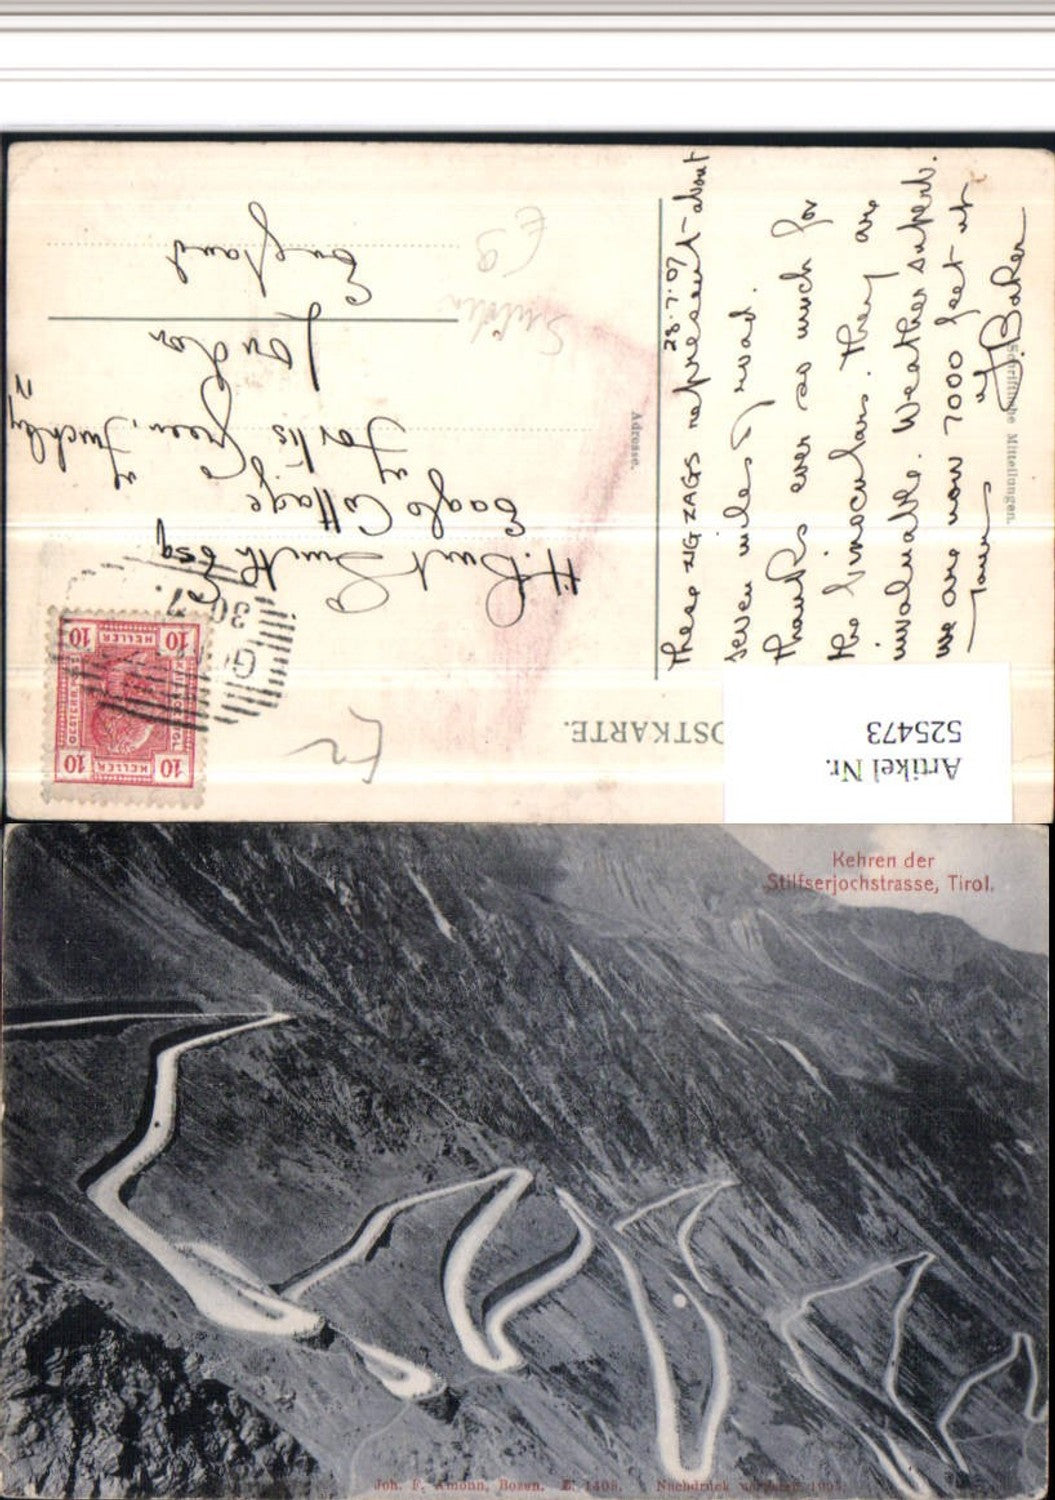 POSTKARTE.
Artikel Nr.
525473
10 10
HELLER
10 10
HELLER
30
Adresse.
H. Burt Smith Esq
Eagle Cottage
Fortis Green,
Finchley
N
London
England
Schriftliche Mitteilungen.
28.7.07
These ZIG ZAGS represent about
seven miles of road.
Thanks ever so much for
the binoculars. They are
invaluable. Weather superb.
We are now 7000 feet up
Yours
Baker
Kehren der
Stilfserjochstrasse, Tirol.
Joh. F. Amonn, Bozen. Nachdruck verboten